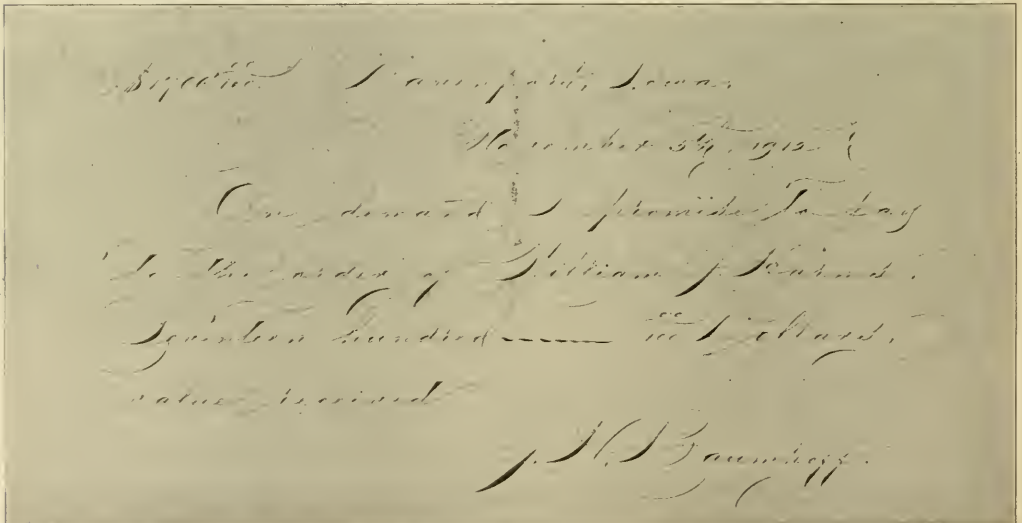 $1700 00/100 Davenport, Iowa,
November 5th, 1912.
On demand I promise To Pay
To the order of William J. Kearns.
Seventeen hundred —— 00/100 Dollars.
value received
J. H. Baumhoff.